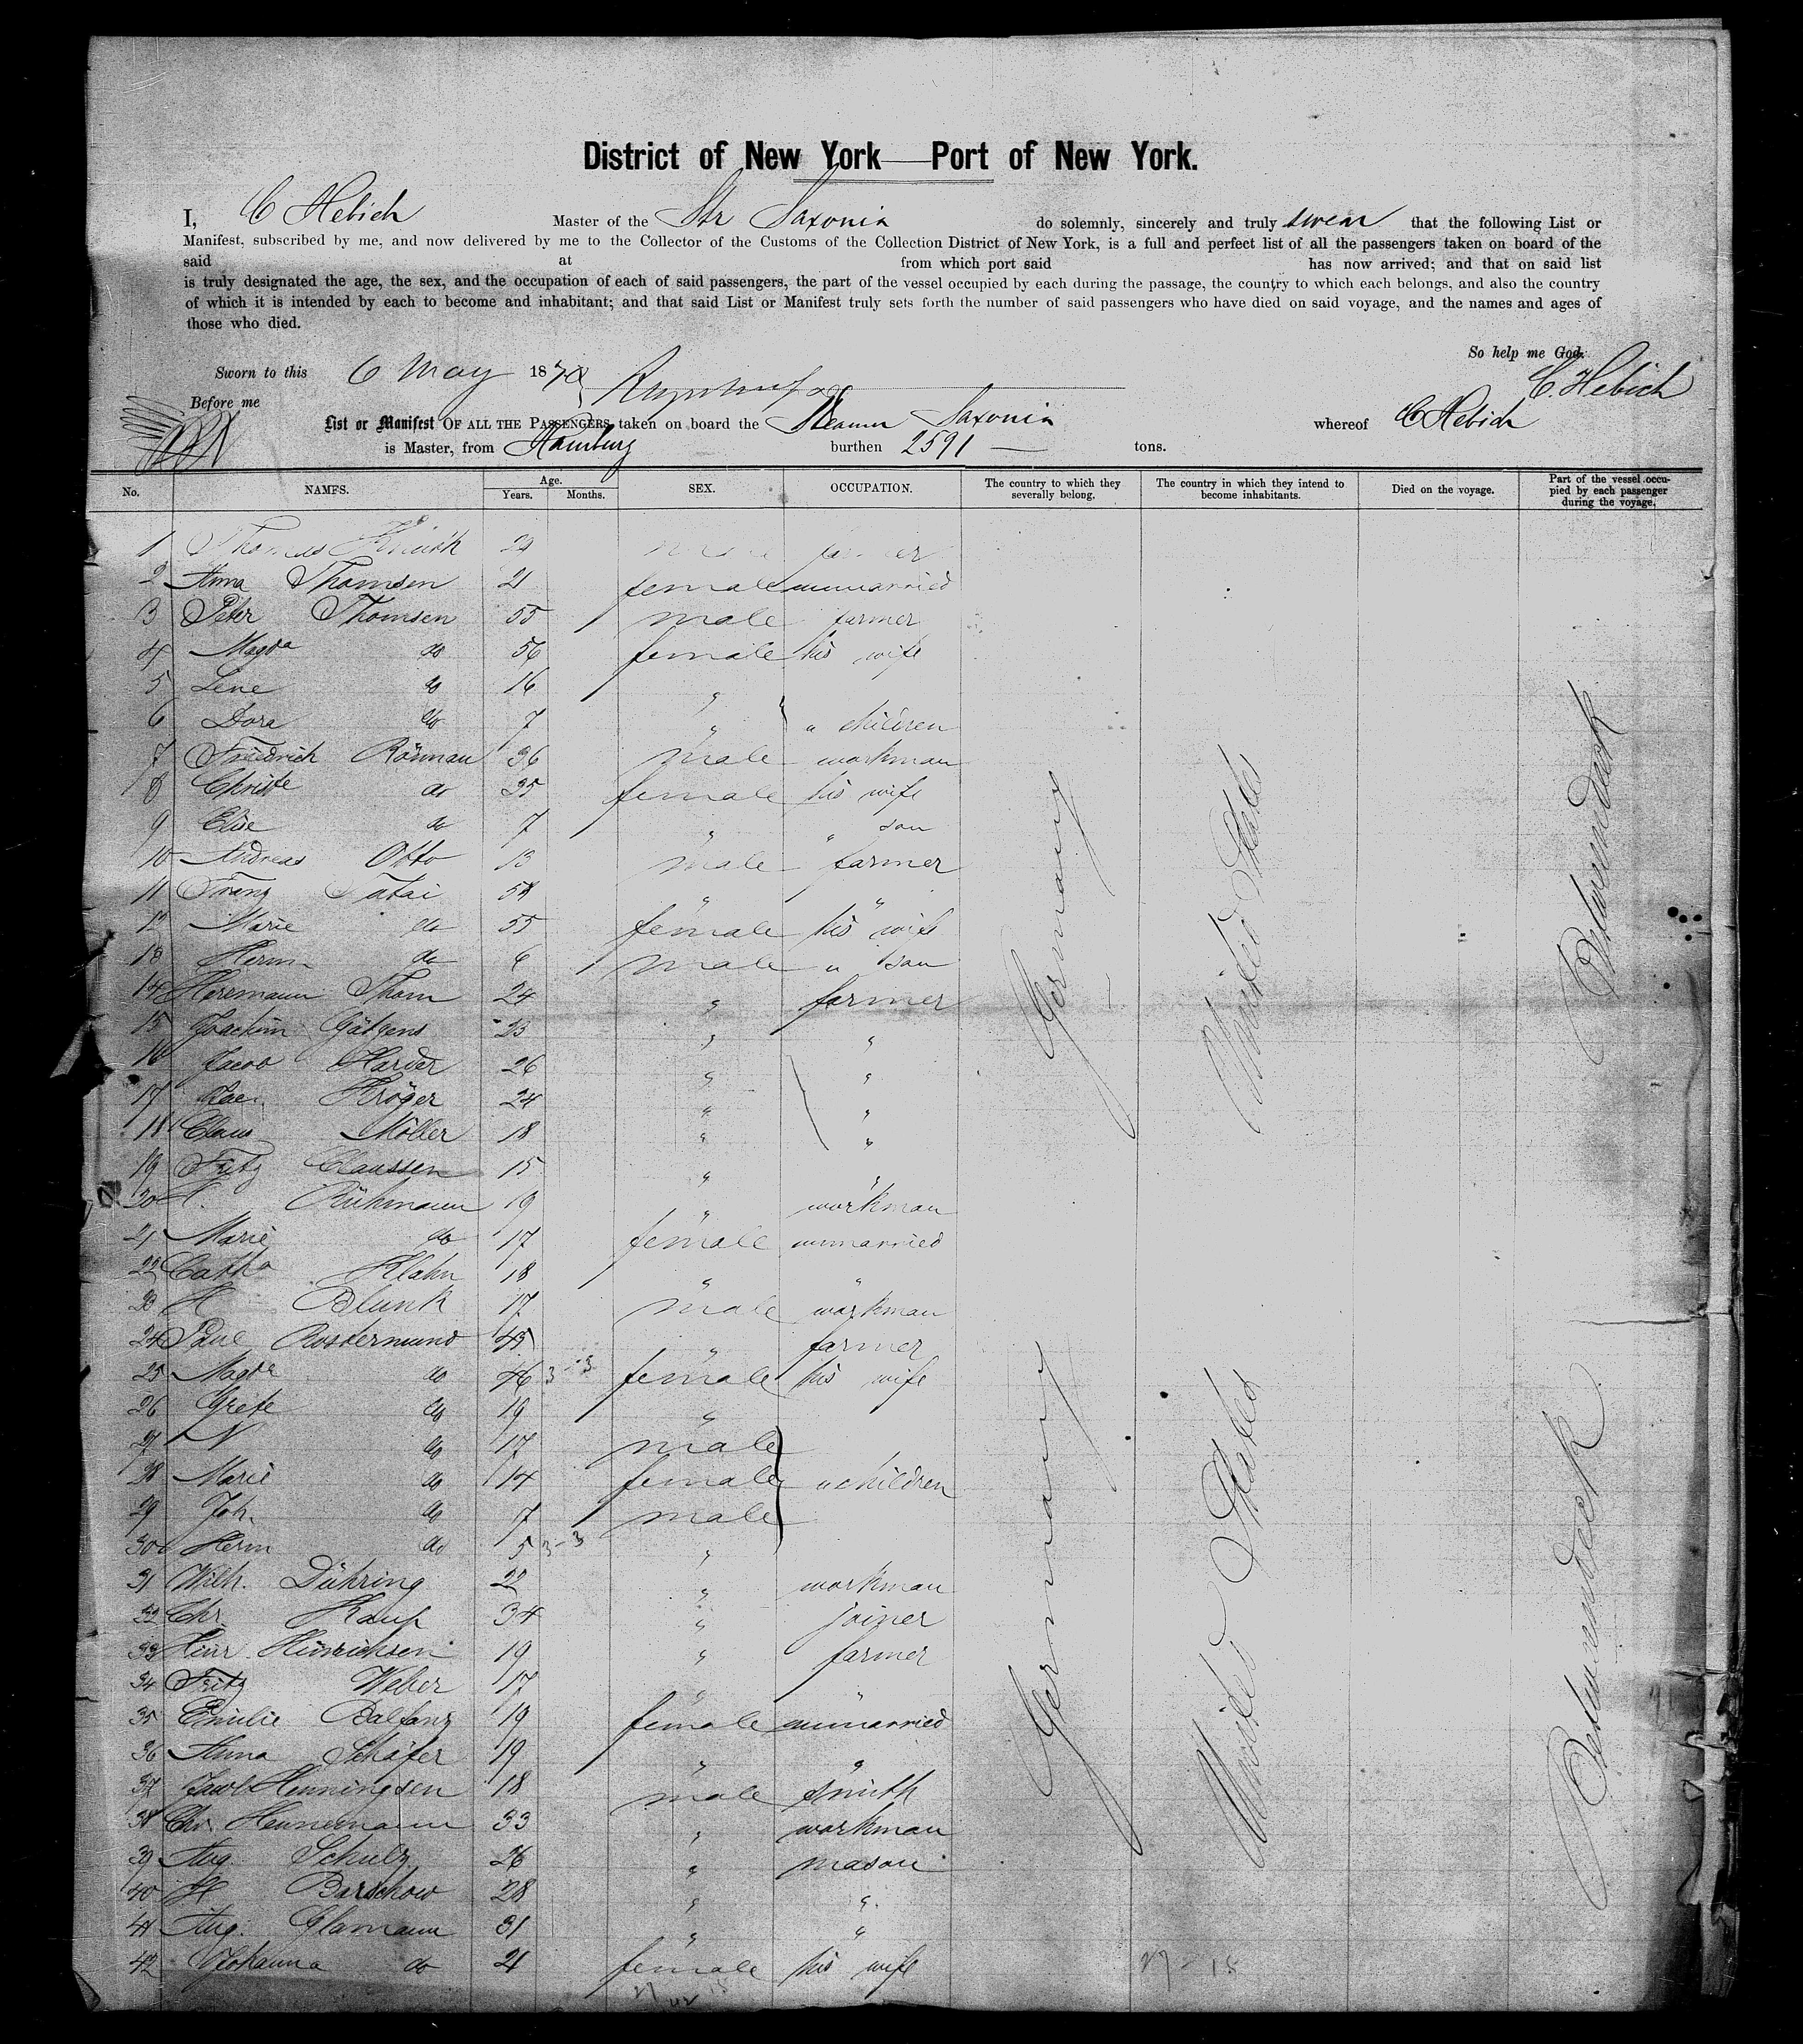 District of New York—Port of New York.
I, C Hebich Master of the Str Saxonia do solemnly, sincerely and truly swear that the following List or
Manifest, subscribed by me, and now delivered by me to the Collector of the Customs of the Collection District of New York, is a full and perfect list of all the passengers taken on board of the
said at from which port said has now arrived; and that on said list
is truly designated the age, the sex, and the occupation of each of said passengers, the part of the vessel occupied by each during the passage, the country to which each belongs, and also the country
of which it is intended by each to become and inhabitant; and that said List or Manifest truly sets forth the number of said passengers who have died on said voyage, and the names and ages of
those who died.
So help me God.
Sworn to this 6 May 187 C. Hebich
Before me
List or Manifest OF ALL THE PASSENGERS taken on board the Steamer Saxonia whereof C Hebich
is Master, from Hamburg burthen 2591 — tons.
No. NAMES. Age. Years. Months. SEX. OCCUPATION. The country to which they severally belong. The country in which they intend to become inhabitants. Died on the voyage. Part of the vessel occupied by each passenger during the voyage.
1 Thomas male farmer
2 Anna Thomsen 21 female unmarried
3 Peter Thomsen 55 male farmer
4 Magda do 56 female his wife
5 Lene do 16 "
6 Dora do 7 " " children
7 Friedrich Rönnau 36 male workman
8 Christe do 35 female his wife
9 Elise do 7 " " son
10 Andreas Otto 13 male farmer
11 Franz Tatai 58 " "
12 Marie do 55 female his wife
13 Herm. do 6 male " son
14 Herrmann Thom 24 " farmer
15 Joachim Götgens 23 " "
16 Jacob Harder 26 " "
17 Kröger 24 " "
18 Claus Möller 18 " "
19 Fritz Claussen 15 " "
20 Rühmann 19 " workman
21 Marie do 17 female unmarried
22 Catha Klahn 18 " "
23 H Blunk 17 male workman
24 Paul Rostermund 45 " farmer
25 Magda do 46 3-3 female his wife
26 Grete do 19 "
27 N do 17 male
28 Marie do 14 female " children
29 Joh. do 7 male
30 Herm do 5 3-3 "
31 Wilh. Dühring 22 " workman
32 Chr. Kaup 34 " joiner
33 Heinr. Hinrichsen 19 " farmer
34 Fritz Weber 17 " "
35 Emilie Balfanz 19 female unmarried
36 Anna Schäfer 19 " "
37 Jacob Henningsen 18 male smith
38 Chr. Hennemann 33 " workman
39 Aug. Schulz 26 " mason
40 H Barschow 28 " "
41 Aug. Glamann 31 " "
42 Johanna do 21 female his wife
Germany
United States
Betweendeck
Germany
United States
Betweendeck
27-15